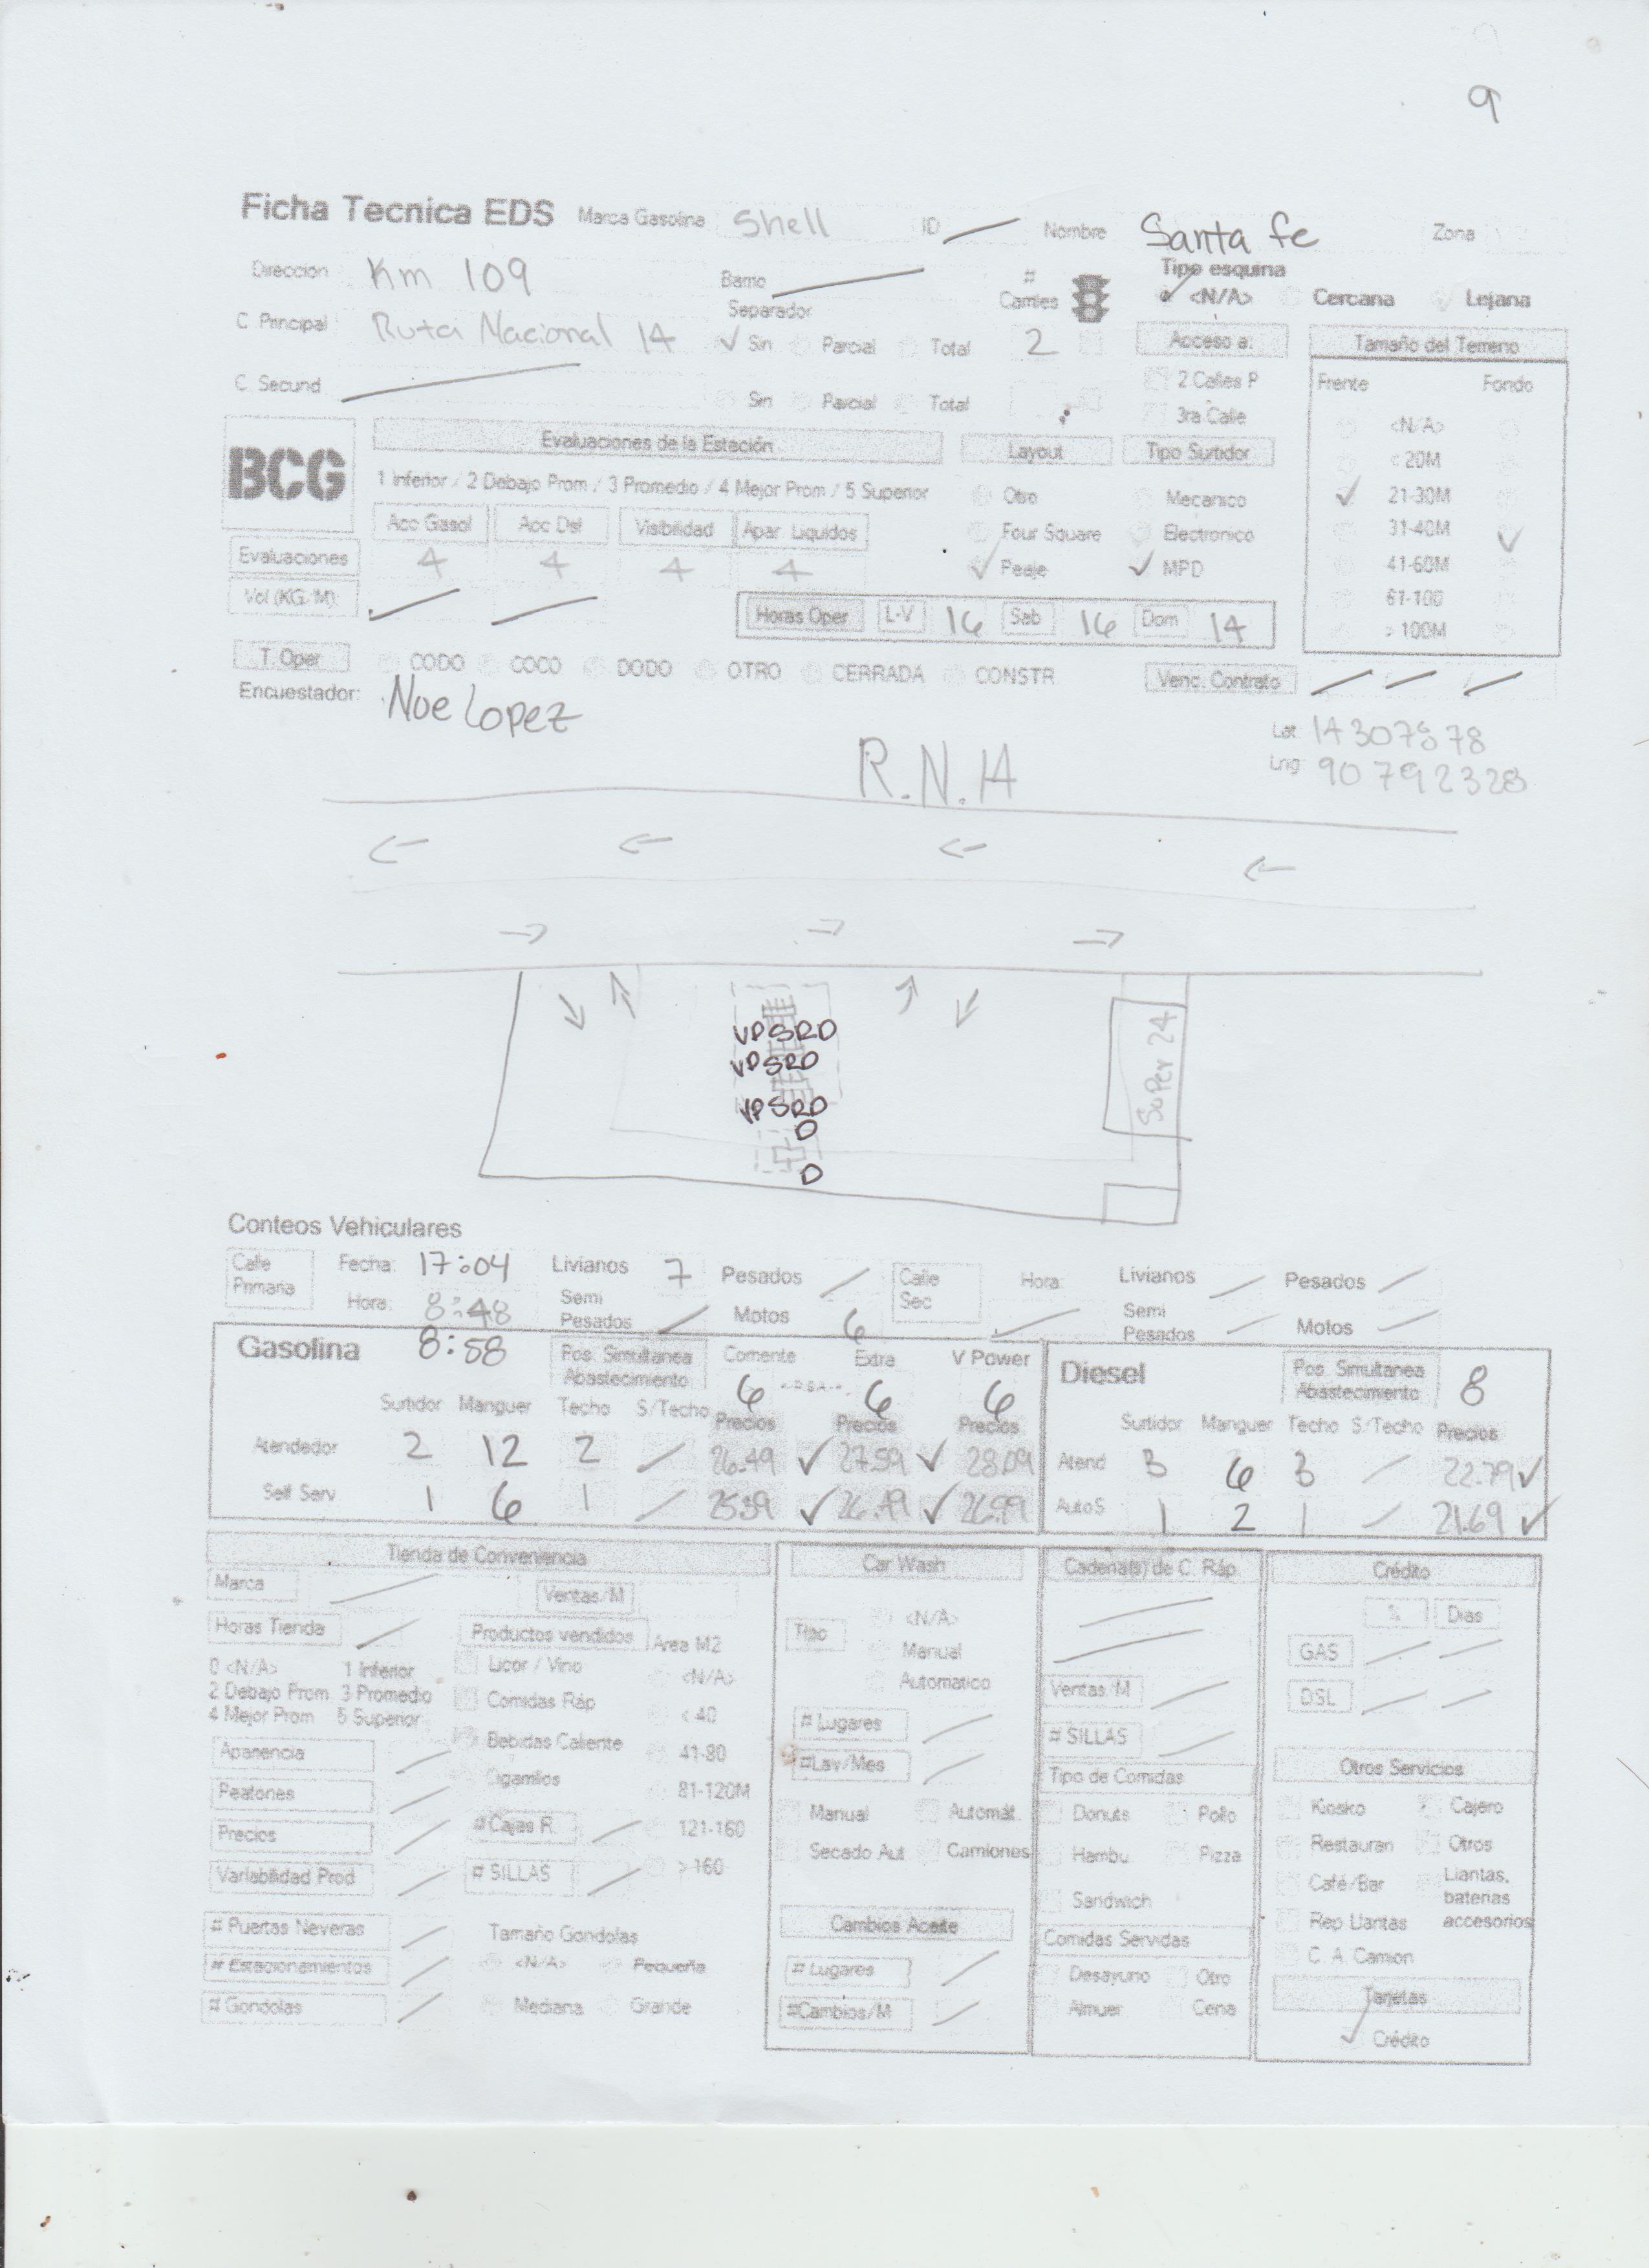 9
Ficha Tecnica EDS Marca Gasolina Shell ID Nombre Santa fe Zona
Direccion Km 109 Barrio # Carriles Tipo esquina <N/A> Cercana Lejana
C Principal Ruta Nacional 14 Separador Sin Parcial Total 2 Acceso a: Tamaño del Terreno
C Secund Sin Parcial Total 2 Calles P Frente Fondo
3ra Calle <N/A>
BCG Evaluaciones de la Estación Layout Tipo Surtidor < 20M
1 Inferior / 2 Debajo Prom / 3 Promedio / 4 Mejor Prom / 5 Superior Otro Mecanico 21-30M
Acc Gasol Acc Dsl Visibilidad Apar Liquidos Four Square Electronico 31-40M
Evaluaciones 4 4 4 4 Peaje MPD 41-60M
Vol (KG/M) Horas Oper L-V 16 Sab 16 Dom 14 61-100
> 100M
T. Oper CODO COCO DODO OTRO CERRADA CONSTR Venc. Contrato
Encuestador: Noe Lopez
Lat 14307578
Lng 90792328
R.N.14
VPSRD
VPSRD
VPSRD
D
D
Super 24
Conteos Vehiculares
Calle Primaria Fecha: 17:04 Livianos 7 Pesados Calle Sec Hora: Livianos Pesados
Hora: 8:48 Semi Pesados Motos 6 Semi Pesados Motos
Gasolina 8:58 Pos. Simultanea Abastecimiento Extra V Power Diesel Pos. Simultanea Abastecimiento 8
6 6 6
Surtidor Manguer Techo S/Techo Precios Precios Precios Surtidor Manguer Techo S/Techo Precios
Atendedor 2 12 2 26.49 27.59 28.09 Atend 3 6 3 22.79
Self Serv 1 6 1 25.39 26.49 26.99 AutoS 1 2 1 21.69
Tienda de Conveniencia Car Wash Cadena(s) de C. Ráp. Crédito
Marca Ventas/M % Dias
Horas Tienda Productos vendidos Area M2 Tipo <N/A> GAS
0 <N/A> 1 Inferior Licor / Vino <N/A> Manual
2 Debajo Prom 3 Promedio Comidas Ráp < 40 Automatico Ventas/M DSL
4 Mejor Prom 5 Superior Bebidas Caliente 41-80 # Lugares # SILLAS
Apariencia Cigarrillos 81-120M #Lav/Mes Tipo de Comidas Otros Servicios
Peatones # Cajas R. 121-160 Manual Automát. Donuts Pollo Kiosko Cajero
Precios # SILLAS > 160 Secado Aut Camiones Hambu Pizza Restauran Otros
Variabilidad Prod Sandwich Café/Bar Llantas, baterias accesorios
# Puertas Neveras Tamaño Gondolas Cambios Aceite Comidas Servidas Rep Llantas
# Estacionamientos <N/A> Pequeña # Lugares Desayuno Otro C. A. Camion
# Gondolas Mediana Grande #Cambios/M Almuer Cena Tarjetas
Crédito